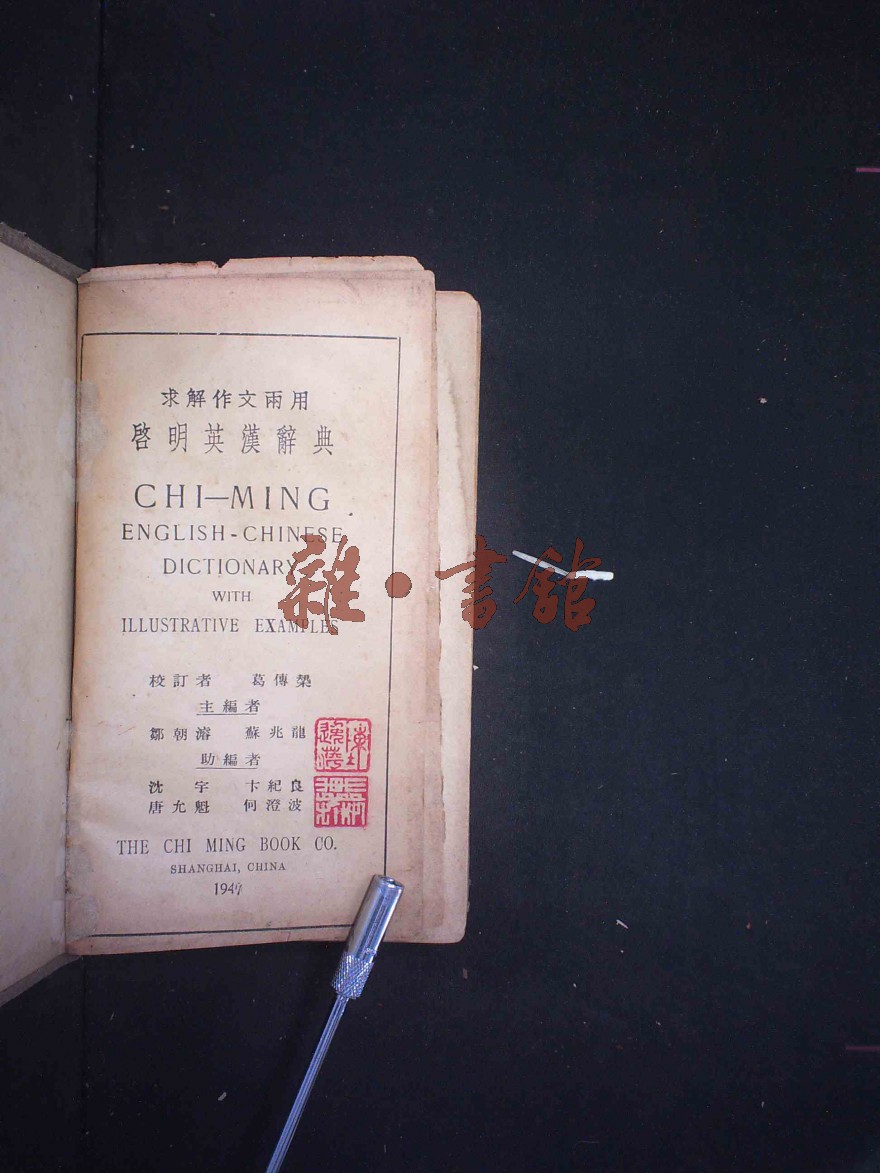 求解作文兩用
啓明英漢辭典
CHI—MING
ENGLISH-CHINESE
DICTIONARY
WITH
ILLUSTRATIVE EXAMPLES
雜•書館
校訂者 葛傳槼
主編者
鄒朝濬 蘇兆龍
助編者
沈宇 卞紀良
唐允魁 何澄波
THE CHI MING BOOK CO.
SHANGHAI, CHINA